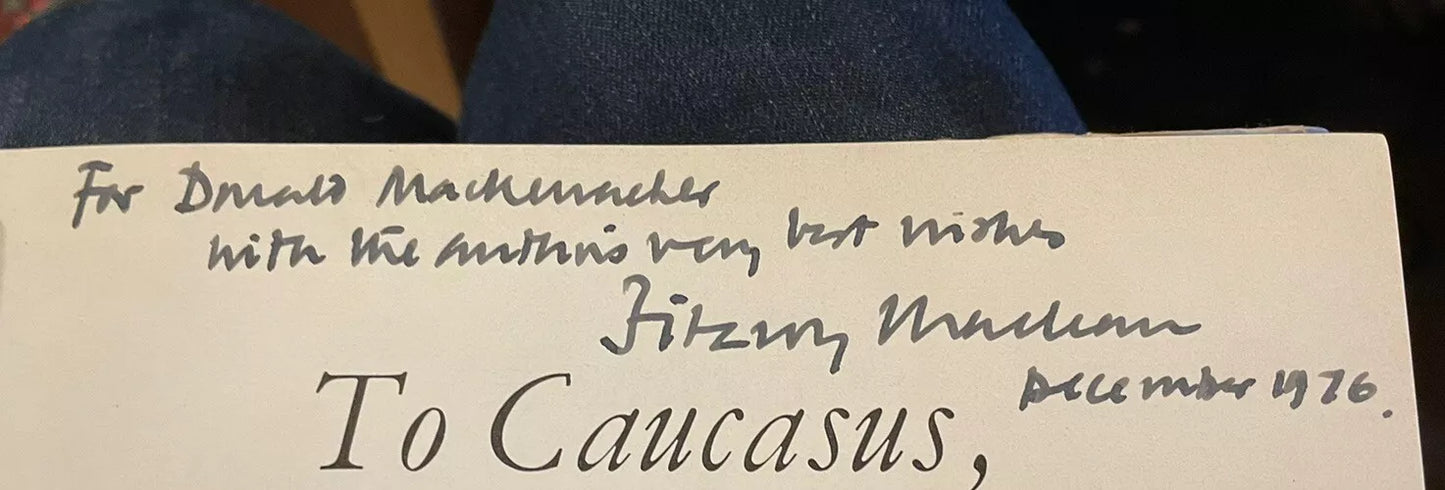 For Donald
with the author's very best wishes
Fitzroy Maclean
December 1976.
To Caucasus,